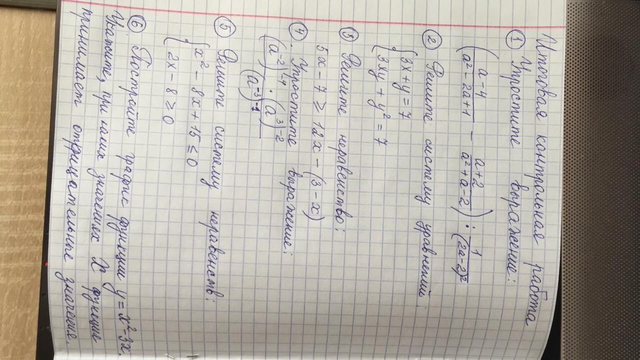 Итоговая контрольная работа
① Упростите выражение:
(a-4/a²-2a+1 - a+2/a²+a-2) : 1/(2a-2)²
② Решите систему уравнений:
{3x+y=7
{3xy+y²=7
③ Решите неравенство:
5x-7 ≥ 12x-(3-x)
④ Упростите выражение:
(a⁻²)⁻⁴ · (a³)⁻²/(a⁻³)
⑤ Решите систему неравенств:
{x²-8x+15≤0
{2x-8≥0
⑥ Постройте график функции y=x²-3x.
Укажите, при каких значениях x функция
принимает отрицательные значения